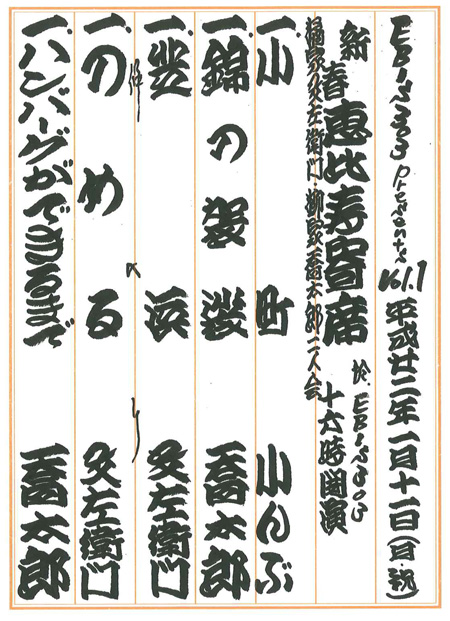 EBIS303 presents vol.1 平成廿二年一月十一日(月・祝)
新春恵比寿寄席 於.EBIS303
橘家文左衛門・柳家喬太郎二人会 十六時開演
一.小町 小んぶ
一.錦の袈裟 喬太郎
一.芝浜 文左衛門
仲入り
一.のめる 文左衛門
一.ハンバーグができるまで 喬太郎